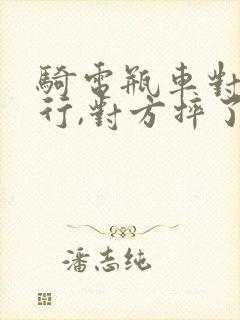 騎電瓶車對
行,對方摔了
潘志純